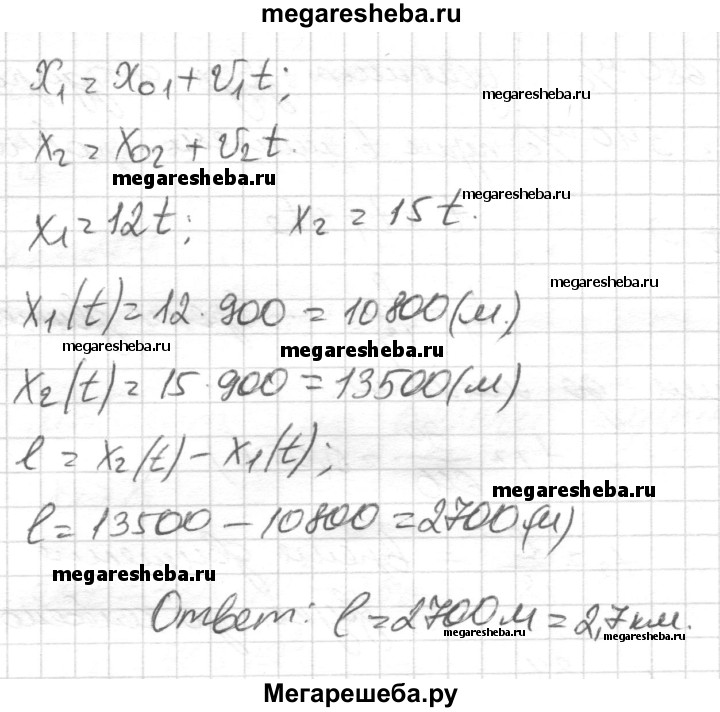 megaresheba.ru
x₁ = x₀₁ + v₁t;
megaresheba.ru
x₂ = x₀₂ + v₂t.
megaresheba.ru
megaresheba.ru
x₁ = 12t; x₂ = 15t.
megaresheba.ru
x₁(t) = 12·900 = 10800(м)
megaresheba.ru megaresheba.ru
x₂(t) = 15·900 = 13500(м)
l = x₂(t) - x₁(t);
megaresheba.ru
l = 13500 - 10800 = 2700(м)
megaresheba.ru
Ответ: l = 2700м = 2,7 км.
megaresheba.ru megaresheba.ru
Мегарешеба.ру